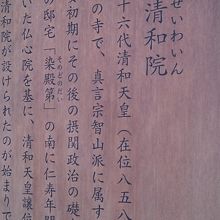 せいわいん
清和院
十六代清和天皇（在位八五八
の寺で、真言宗智山派に属す
安初期にその後の摂関政治の礎
そのどのだい
の邸宅「染殿第」の南に仁寿年間
いた仏心院を基に、清和天皇譲位
清和院が設けられたのが始まりで